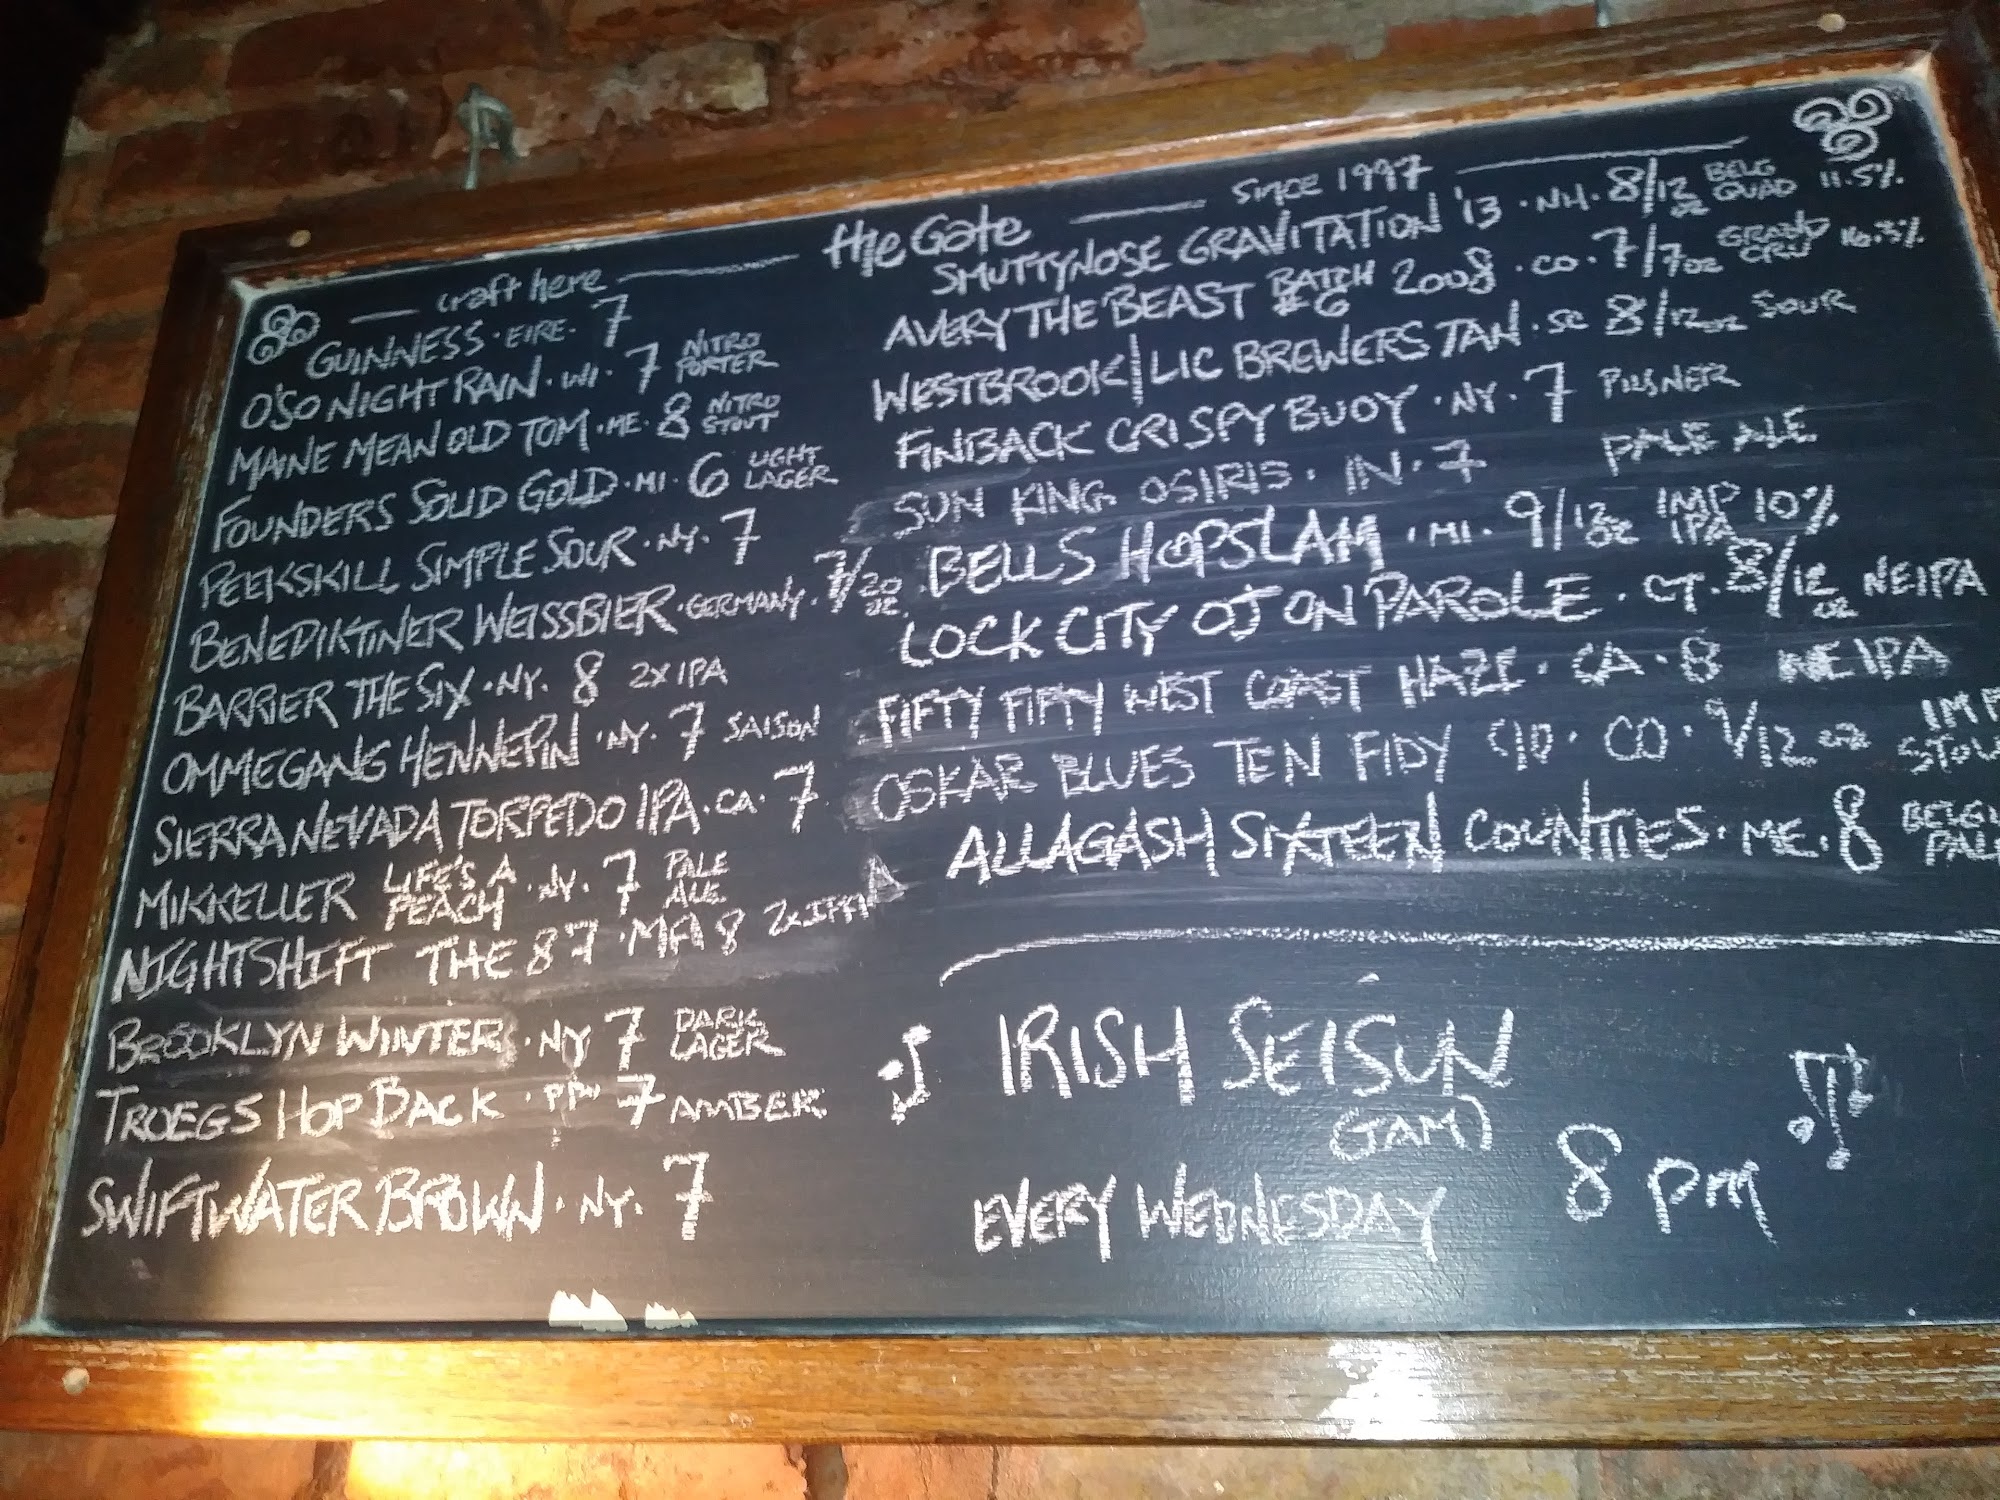 craft here the Gate since 1997
GUINNESS · EIRE · 7
O'SO NIGHT RAIN · WI · 7 NITRO PORTER
MAINE MEAN OLD TOM · ME · 8 NITRO STOUT
FOUNDERS SOLID GOLD · MI · 6 LIGHT LAGER
PEEKSKILL SIMPLE SOUR · NY · 7
BENEDIKTINER WEISSBIER · GERMANY · 7/20 oz
BARRIER THE SIX · NY · 8 2X IPA
OMMEGANG HENNEPIN · NY · 7 SAISON
SIERRA NEVADA TORPEDO IPA · CA · 7
MIKKELLER LIFE'S A PEACH · NY · 7 PALE ALE
NIGHTSHIFT THE 87 · MA 8 2X IPA
BROOKLYN WINTER · NY 7 DARK LAGER
TROEGS HOP BACK · 7 AMBER
SWIFTWATER BROWN · NY · 7
SMUTTYNOSE GRAVITATION '13 · NH · 8/12 oz BELG QUAD 11.5%
AVERY THE BEAST BATCH #6 2008 · CO · 7/7oz GRAND CRU 16.3%
WESTBROOK|LIC BREWERS TAN · SC 8/12 oz SOUR
FINBACK CRISPY BUOY · NY · 7 PILSNER
SUN KING OSIRIS · IN · 7 PALE ALE
BELLS HOPSLAM · MI · 9/12 oz IMP IPA 10%
LOCK CITY OJ ON PAROLE · CT · 8/12 oz NEIPA
FIFTY FIFTY WEST COAST HAZE · CA · 8 NEIPA
OSKAR BLUES TEN FIDY · CO · 9/12 oz IMP
ALLAGASH SIXTEEN COUNTIES · ME · 8
IRISH SEISÚN
(JAM)
EVERY WEDNESDAY 8 pm